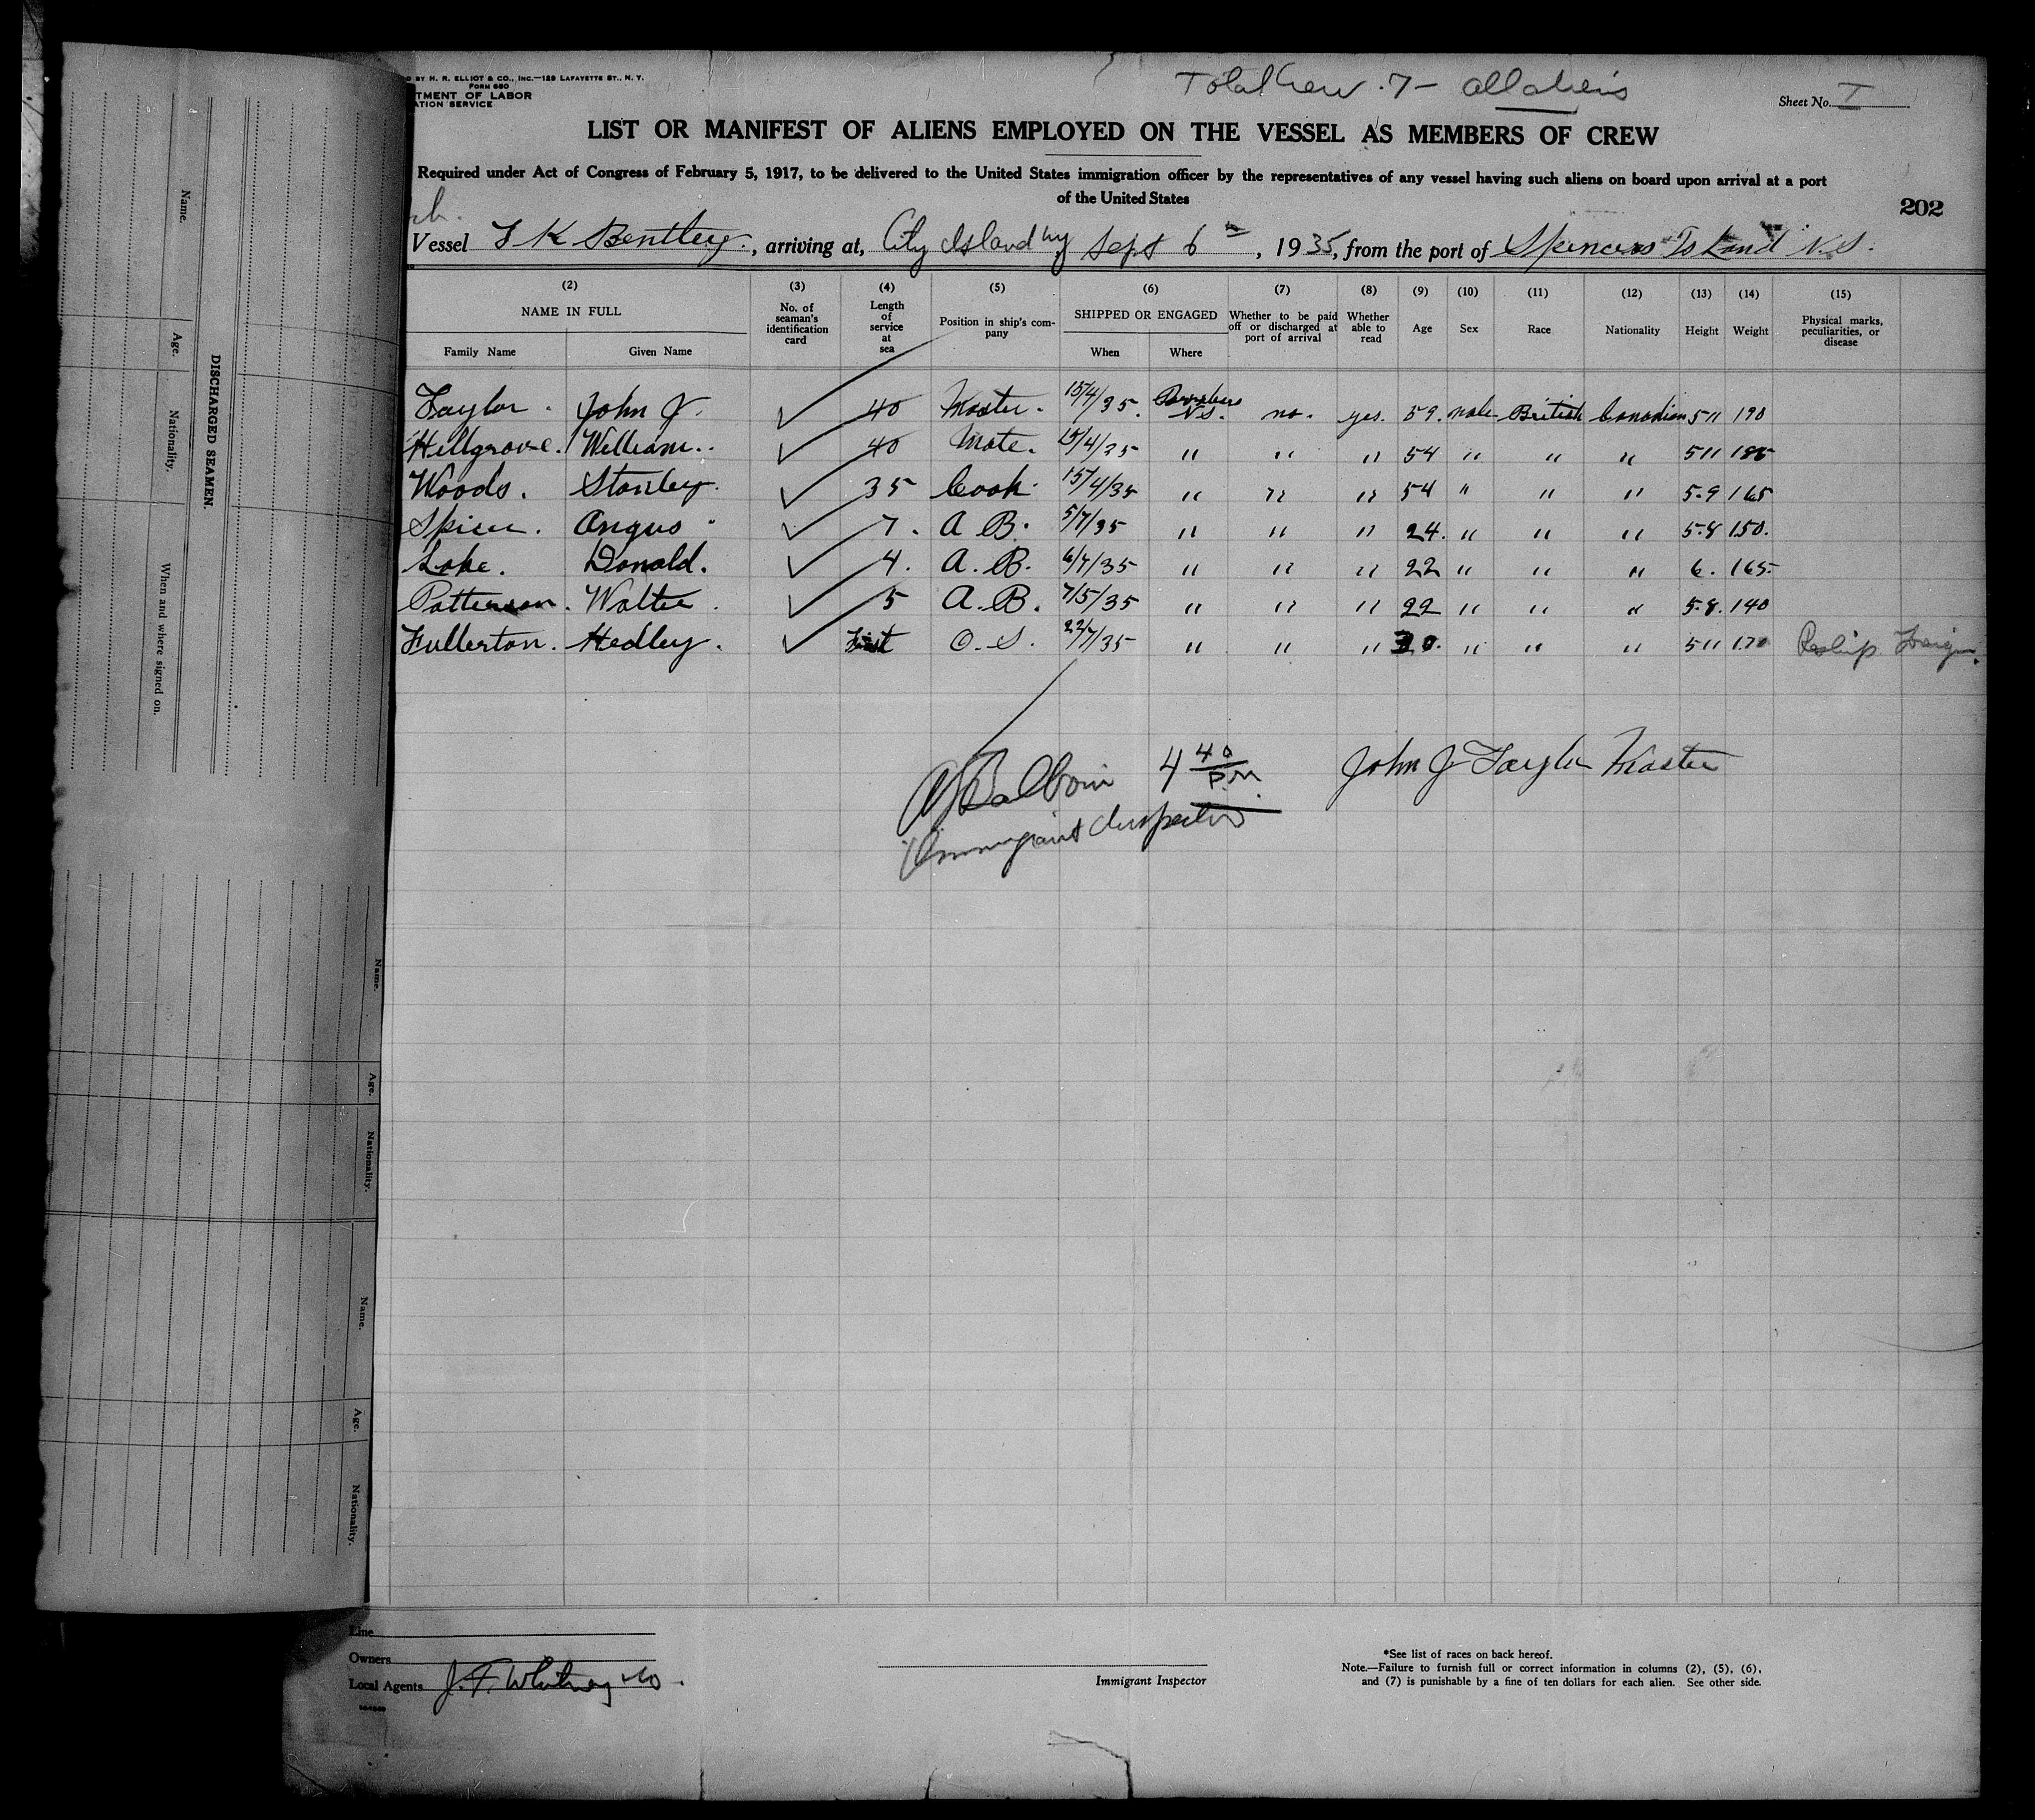 D BY H. R. ELLIOT & CO., INC.—129 LAFAYETTE ST., N. Y.
FORM 680
TMENT OF LABOR
ATION SERVICE
Total Crew . 7 — all aliens
Sheet No. I
LIST OR MANIFEST OF ALIENS EMPLOYED ON THE VESSEL AS MEMBERS OF CREW
Required under Act of Congress of February 5, 1917, to be delivered to the United States immigration officer by the representatives of any vessel having such aliens on board upon arrival at a port
of the United States
202
Vessel F K Bentley, arriving at, City Island NY Sept 6th, 1935, from the port of Spencers Island N.S.
(2) (3) (4) (5) (6) (7) (8) (9) (10) (11) (12) (13) (14) (15)
NAME IN FULL
Family Name Given Name
No. of seaman's identification card
Length of service at sea
Position in ship's company
SHIPPED OR ENGAGED
When Where
Whether to be paid off or discharged at port of arrival
Whether able to read
Age
Sex
Race
Nationality
Height
Weight
Physical marks, peculiarities, or disease
Taylor. John J. ✓ 40 Master. 15/4/35. Parrsboro N.S. no. yes. 59. male British Canadian 5 11 190
Hillgrove. William.. ✓ 40 Mate. 15/4/35 " " " 54 " " " 5 11 185
Woods. Stanley. ✓ 35 Cook. 15/4/35 " " " 54 " " " 5.9 165
Spicer. Angus ✓ 7. A B. 5/7/35 " " " 24. " " " 5.8 150.
Lake. Donald. ✓ 4. A. B. 6/7/35 " " " 22 " " " 6. 165
Patterson. Walter. ✓ 5 A. B. 7/5/35 " " " 22 " " " 5.8. 140
Fullerton. Hedley. ✓ First O. S. 22/7/35 " " " 30. " " " 5 11 170 Reship Foreign.
4 40 P.M.
John J Taylor Master
Immigrant Inspector
Line
Owners
Local Agents J. F. Whitney & Co.
Immigrant Inspector
*See list of races on back hereof.
Note.—Failure to furnish full or correct information in columns (2), (5), (6),
and (7) is punishable by a fine of ten dollars for each alien. See other side.
DISCHARGED SEAMEN.
Name. Age. Nationality. When and where signed on.
Name. Age. Nationality.
Name. Age. Nationality.